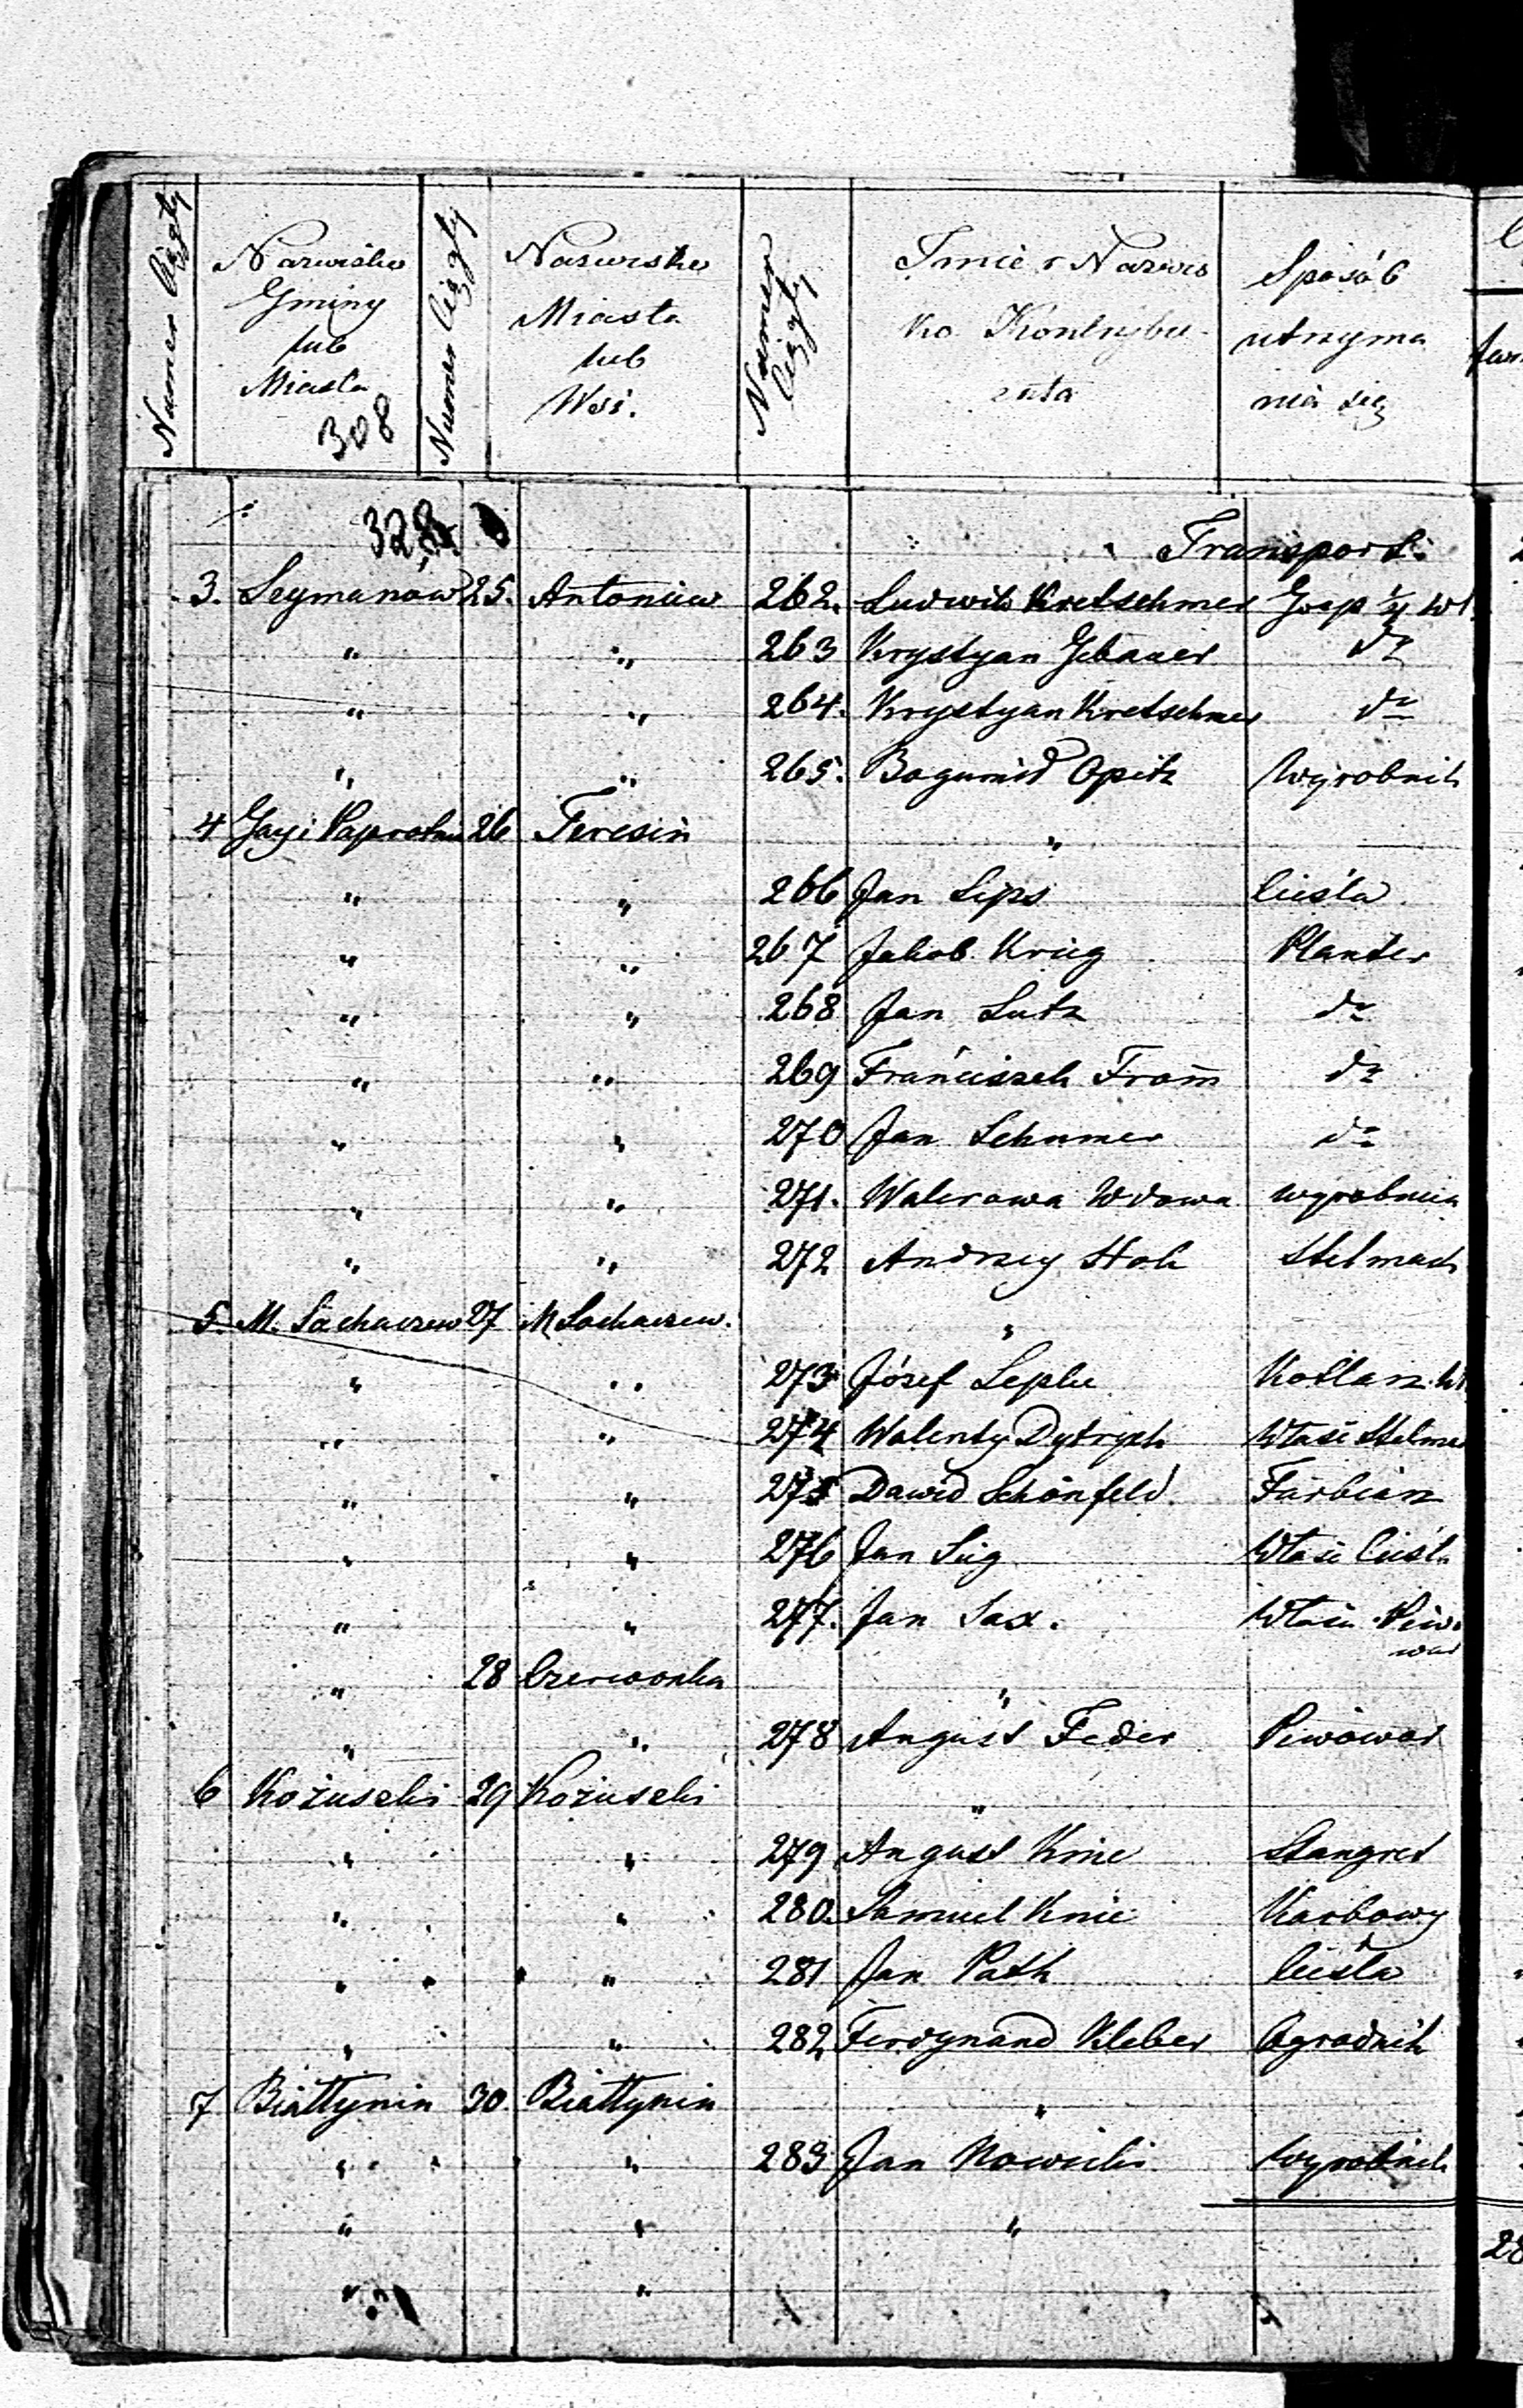 Numer Ciągły
Nazwisko Gminy lub Miasta
Numer Ciągły
Nazwisko Miasta lub Wsi.
Numer Ciągły
Imie i Nazwis ko Kontrybu enta
Sposób utrzyma nia się
308
328
Transport:
3. Seymanów 25. Antoniew 262. Ludwik Kretschmer Gosp ¼ Wł
" " 263 Krystyan Gebauer do
" " 264. Krystyan Kretschmer do
" " 265. Bogumił Opitz Wyrobnik
4 Gay i Paprotnia 26 Teresin "
" " 266 Jan Lips Cieśla
" " 267 Jakob Krieg Planter
" " 268 Jan Lutz do
" " 269 Franciszek From̄ do
" " 270 Jan do
" " 271. Walerowa Wdowa wyrobnica
" " 272 Andrzey Hok Stelmach
5. M. Sochaczew 27 M Sochaczew. "
" " 273 Józef Lepke Kotlarz Wł
" " 274 Walenty Dytrych Właśc Stelma
" " 275 Dawid Schönfeld Farbiarz
" " 276 Jan Właśc Cieśla
" " 277. Jan Sax. Właśc Piwo
war
" 28 Czerwonka "
" " 278 August Feder Piwowar
6 Kożuszki 29 Kożuszki "
" " 279 August Knie Stangret
" " 280. Samuel Knie Karbowy
" " 281 Jan Path Cieśla
" " 282 Ferdynand Kleber Ogrodnik
7 Białłynin 30. Białłynin "
" " 283 Jan Nowicki Wyrobnik
" " "
" "
28